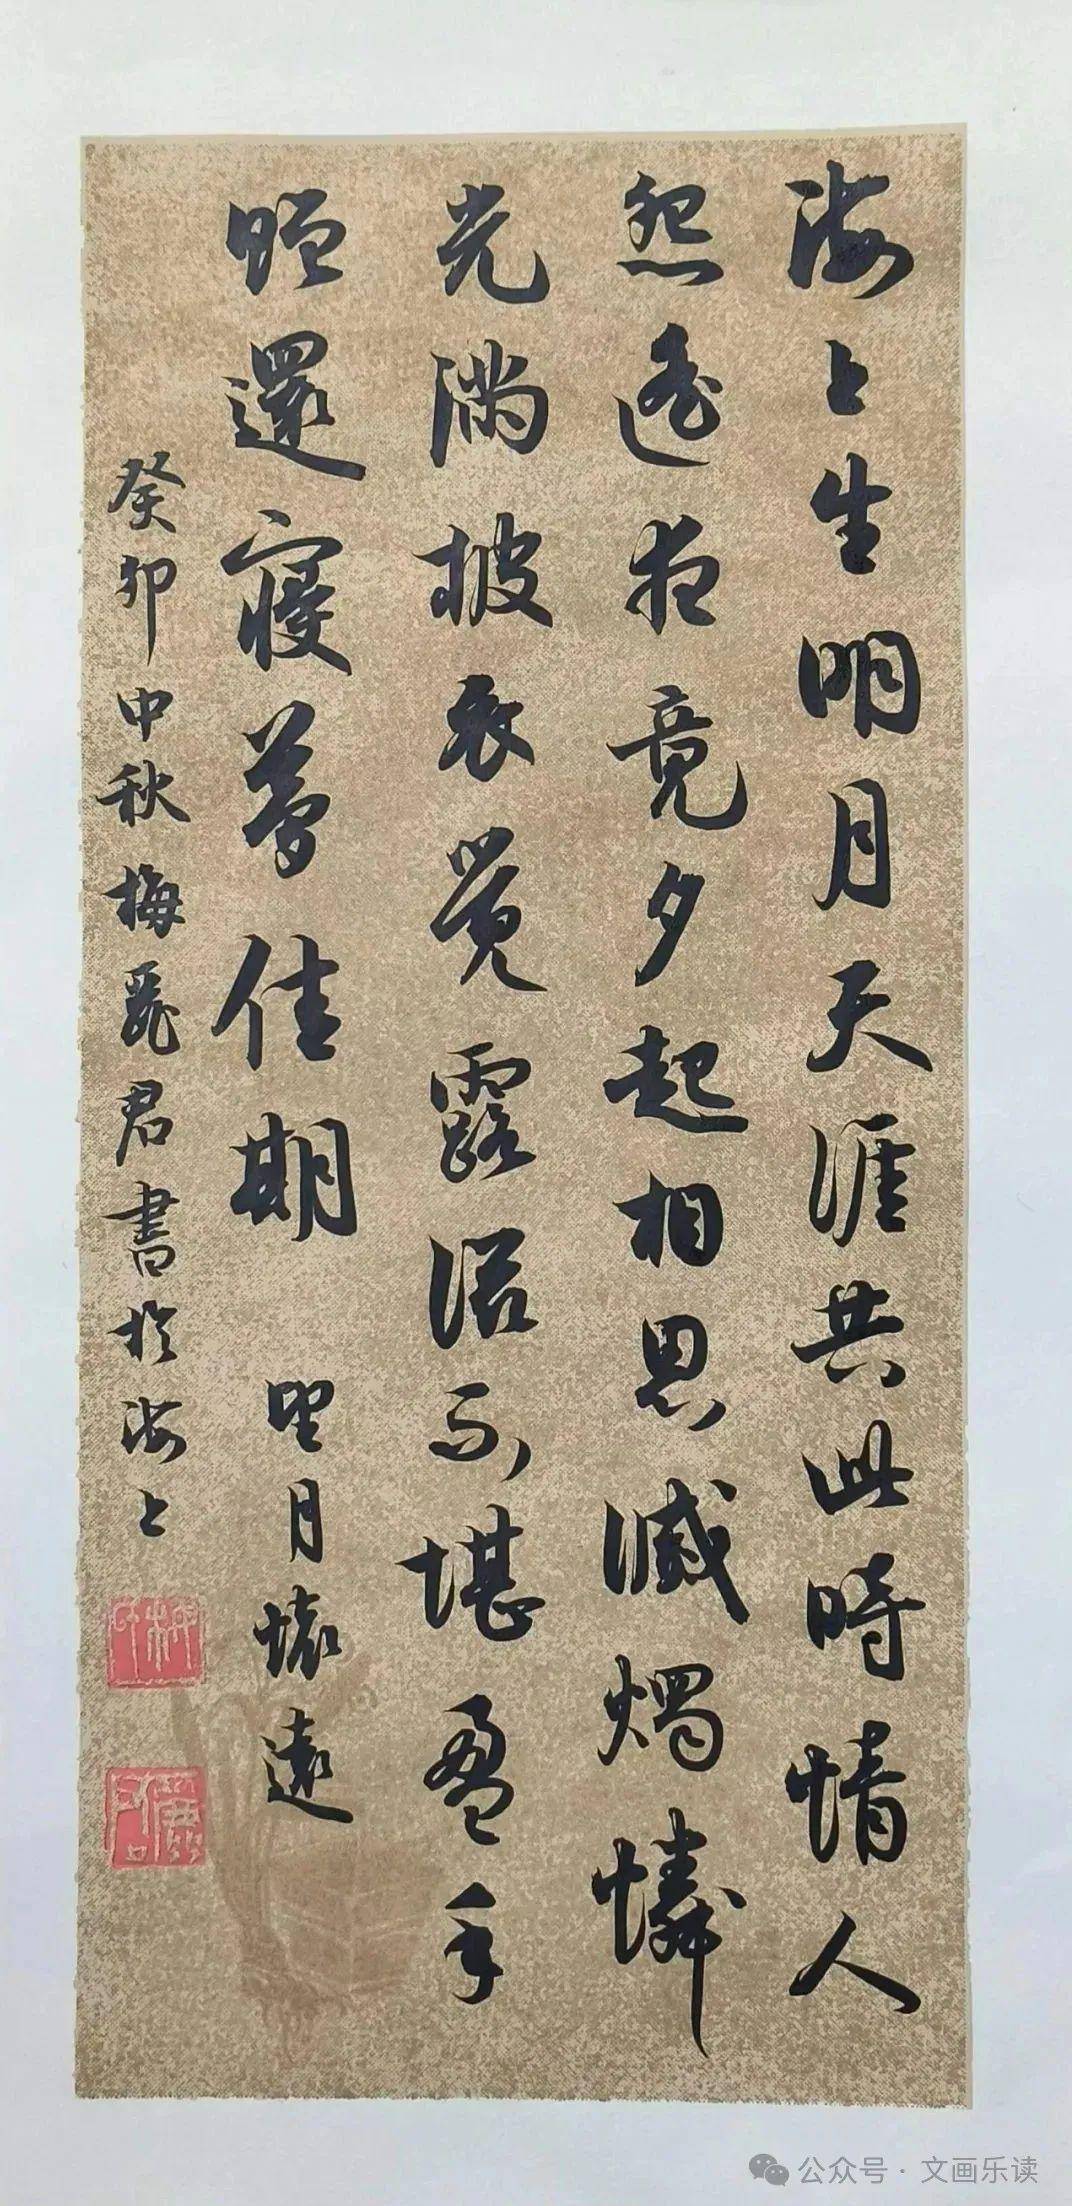 海上生明月天涯共此時情人
怨遙夜竟夕起相思滅燭憐
光滿披衣覺露滋不堪盈手
贈還寢夢佳期 望月懷遠
癸卯中秋梅麗君書於海上
梅印
麗君
公众号 · 文画乐读